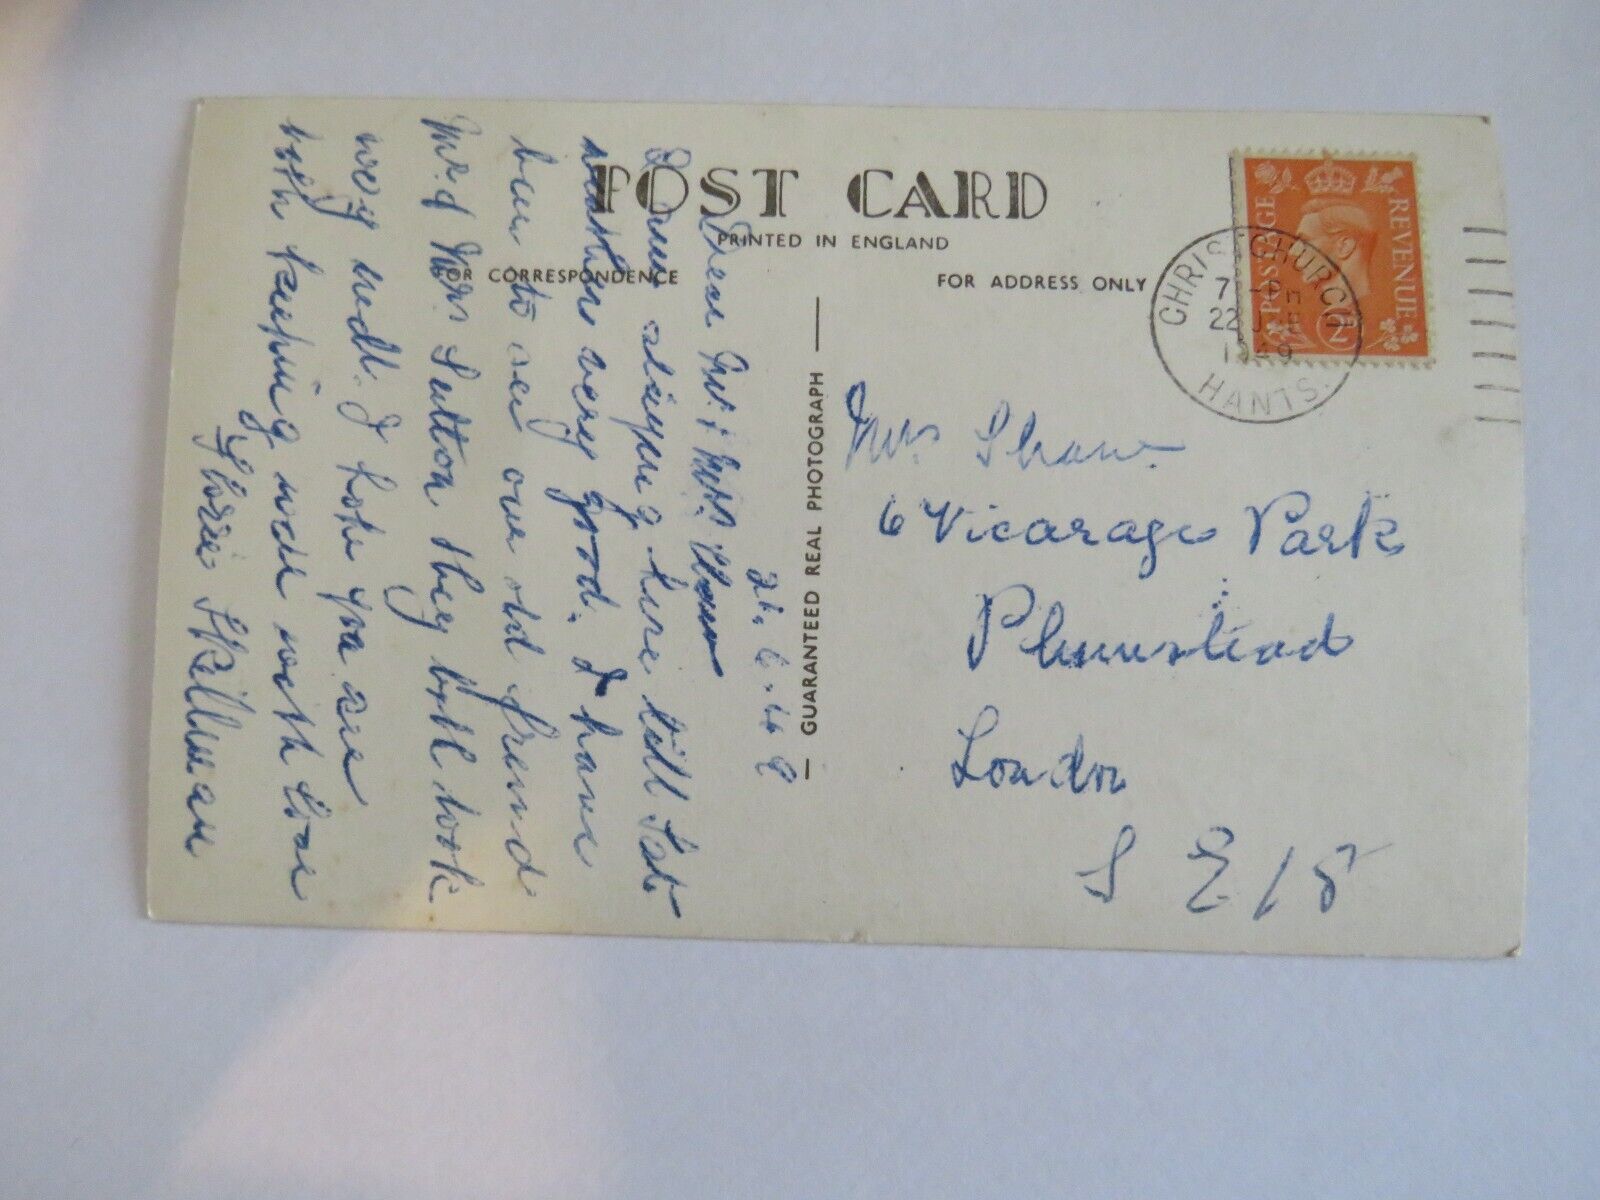 POST CARD
PRINTED IN ENGLAND
FOR CORRESPONDENCE
FOR ADDRESS ONLY
GUARANTEED REAL PHOTOGRAPH
POSTAGE
REVENUE
2
CHRISTCHURCH
22
HANTS.
Dear Mr. & Mrs. Shaw
I am staying here till Sat
weather very good. I have
been to see our old friend
Mr & Mrs Sutton they both look
very well. I hope you are
both keeping well with love
Mrs Shaw.
6 Vicarage Park
Plumstead
London
S E 18